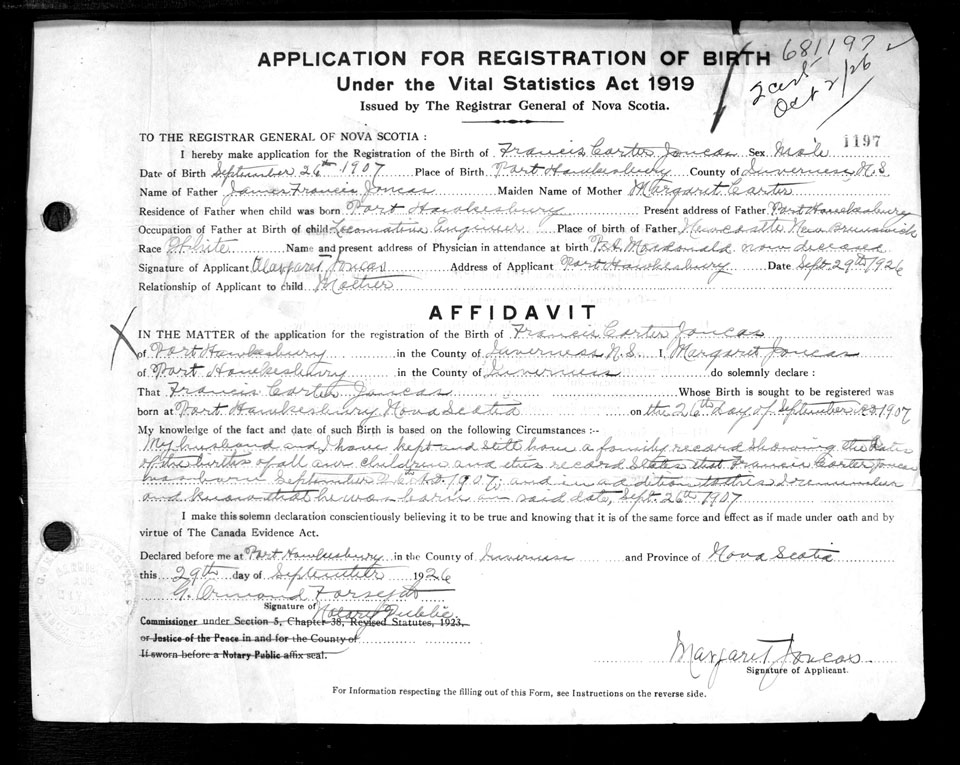 APPLICATION FOR REGISTRATION OF BIRTH 681197
Under the Vital Statistics Act 1919
Oct 2/26
Issued by The Registrar General of Nova Scotia.
TO THE REGISTRAR GENERAL OF NOVA SCOTIA :
1197
I hereby make application for the Registration of the Birth of Francis Carter Joncas Sex Male
Date of Birth September 26th 1907 Place of Birth Port Hawkesbury County of Inverness N.S.
Name of Father James Francis Joncas Maiden Name of Mother Margaret Carter
Residence of Father when child was born Port Hawkesbury Present address of Father Port Hawkesbury
Occupation of Father at Birth of child Locomotive Engineer Place of birth of Father Newcastle New Brunswick
Race White Name and present address of Physician in attendance at birth P.A. Macdonald now deceased
Signature of Applicant Margaret Joncas Address of Applicant Port Hawkesbury Date Sept. 29th 1926
Relationship of Applicant to child Mother
AFFIDAVIT
IN THE MATTER of the application for the registration of the Birth of Francis Carter Joncas
of Port Hawkesbury in the County of Inverness N.S. I, Margaret Joncas
of Port Hawkesbury in the County of Inverness do solemnly declare :
That Francis Carter Joncas Whose Birth is sought to be registered was
born at Port Hawkesbury Nova Scotia on the 26th day of September 1907
My knowledge of the fact and date of such Birth is based on the following Circumstances :-
My husband and I have kept and still have a family record showing the dates
of the births of all our children and this record states that Francis Carter Joncas
was born September 26th A.D. 1907, and in addition to this I remember
and know that he was born on said date, Sept. 26th 1907
I make this solemn declaration conscientiously believing it to be true and knowing that it is of the same force and effect as if made under oath and by
virtue of The Canada Evidence Act.
Declared before me at Port Hawkesbury in the County of Inverness and Province of Nova Scotia
this 29th day of September 1926
G. Ormond Forsyth
Signature of Notary Public
Commissioner under Section 5, Chapter 38, Revised Statutes, 1923,
or Justice of the Peace in and for the County of
If sworn before a Notary Public affix seal.
Margaret Joncas
Signature of Applicant.
For Information respecting the filling out of this Form, see Instructions on the reverse side.